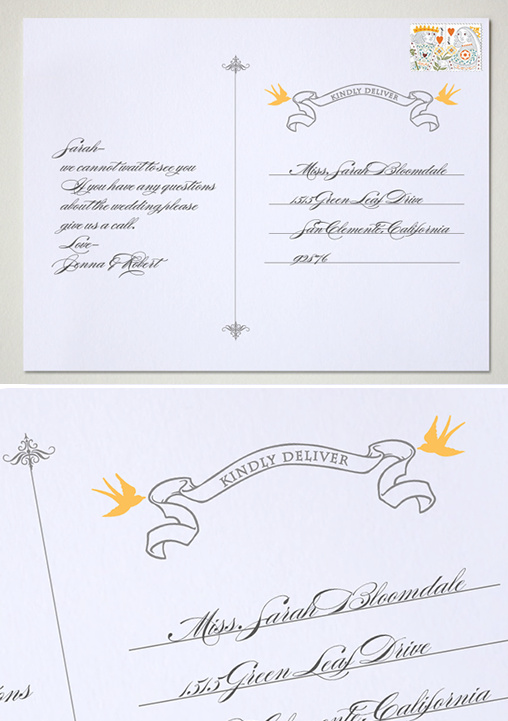 Sarah–
we cannot wait to see you
If you have any questions
about the wedding please
give us a call.
Love–
Jenna & Robert
KINDLY DELIVER
Miss. Sarah Bloomdale
1515 Green Leaf Drive
San Clemente, California
92876
KINDLY DELIVER
Miss. Sarah Bloomdale
1515 Green Leaf Drive
ons
Clemente, California